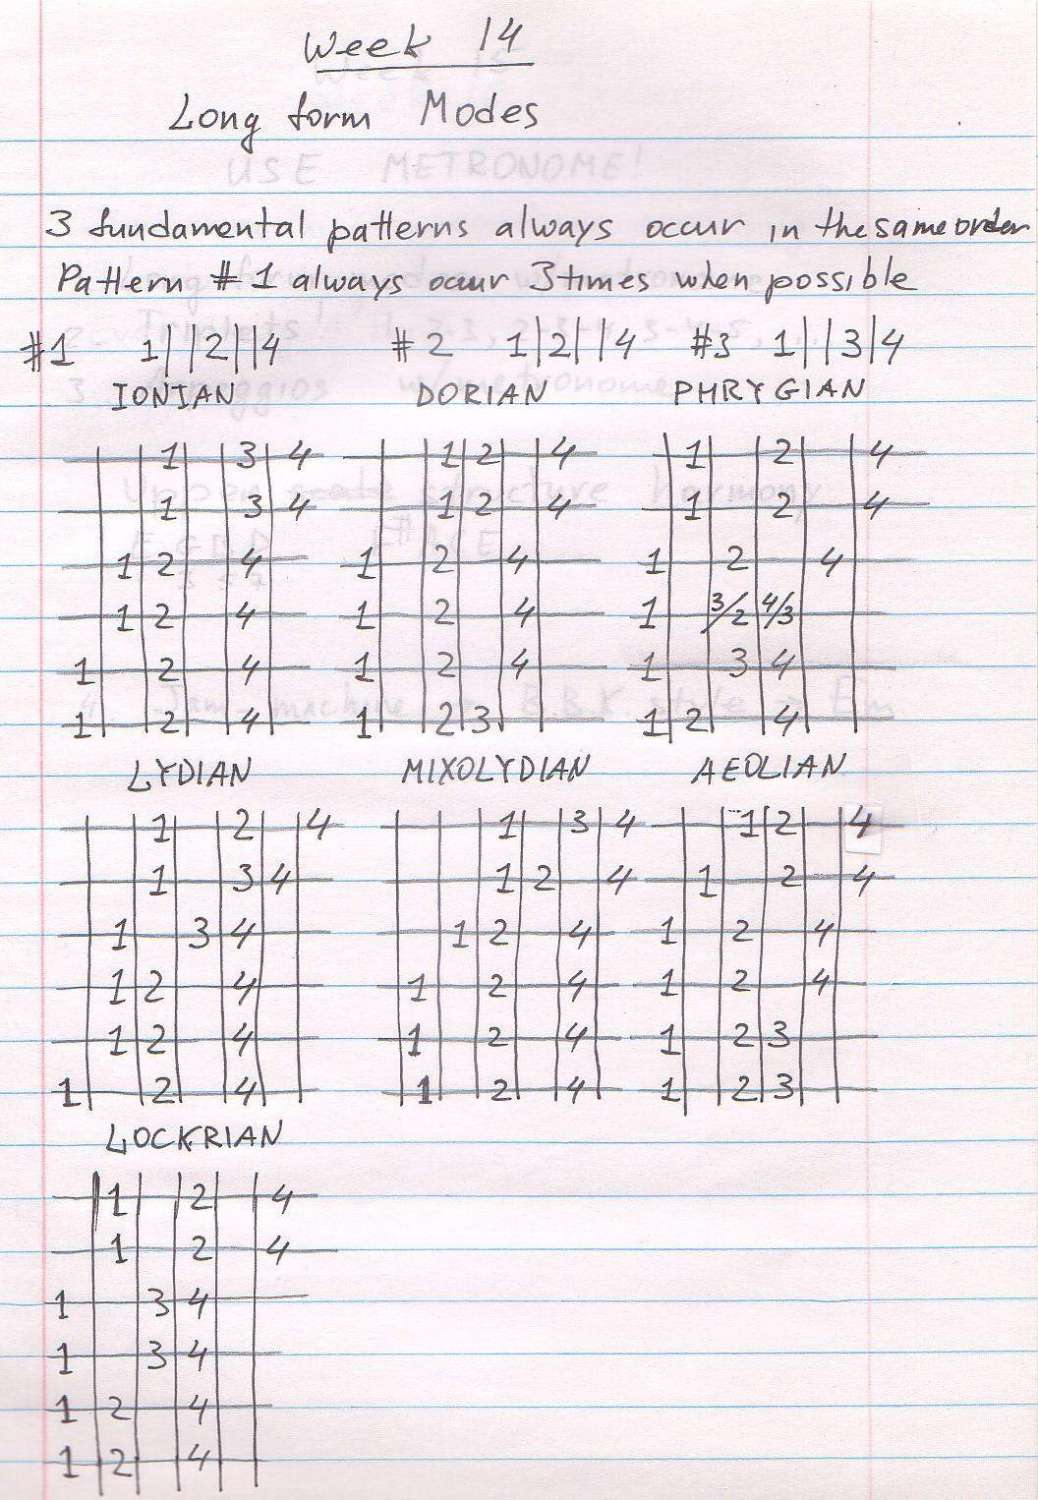 Week 14
Long form Modes
USE METRONOME!
3 fundamental patterns always occur in the same order
Pattern #1 always occur 3 times when possible
#1 1||2||4 #2 1|2||4 #3 1||3|4
IONIAN DORIAN PHRYGIAN
1 3 4 1 2 4 1 2 4
1 3 4 1 2 4 1 2 4
1 2 4 1 2 4 1 2 4
1 2 4 1 2 4 1 3/2 4/3
1 2 4 1 2 4 1 3 4
1 2 4 1 2 3 1 2 4
LYDIAN MIXOLYDIAN AEOLIAN
1 2 4 1 3 4 1 2 4
1 3 4 1 2 4 1 2 4
1 3 4 1 2 4 1 2 4
1 2 4 1 2 4 1 2 4
1 2 4 1 2 4 1 2 3
1 2 4 1 2 4 1 2 3
LOCKRIAN
1 2 4
1 2 4
1 3 4
1 3 4
1 2 4
1 2 4